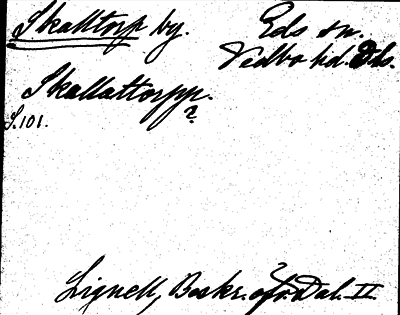 Skalltorp by. Eds sn.
Vedbo hd. Dls.
Skallattorpp.
?
S.101.
Lignell, Beskr. öfv. Dal. II